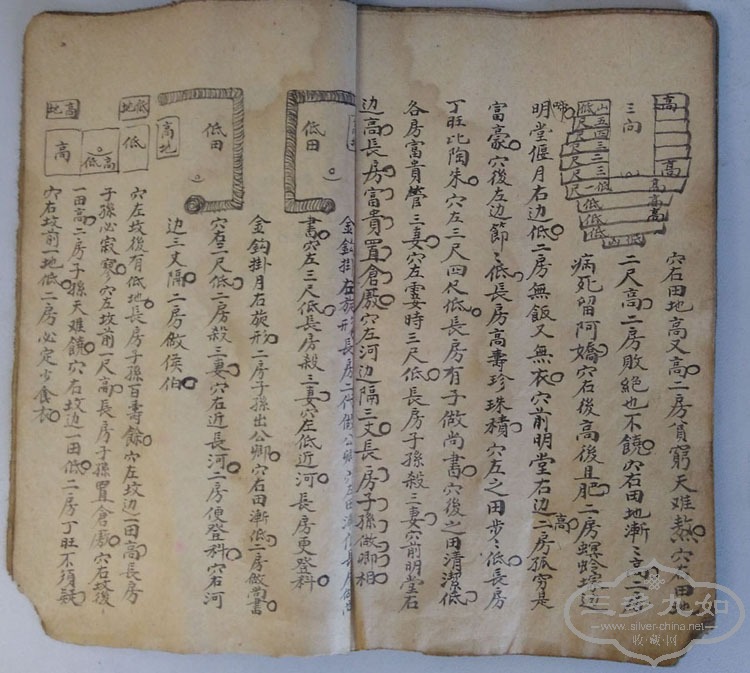 高
高
三向
山五四三二低
低尺尺尺尺尺一低
高高高
低低低
山低
穴右田地高又高二房貧窮天难熬穴右田地
二尺高二房敗絕也不饒穴右田地漸〻高二房
病死留阿嬌穴右後高後且肥二房螟蛉墳邊
啼
明堂偃月右边低二房無飯又無衣穴前明堂右边高二房孤窮是
富豪穴後左边節〻低長房高壽珍珠積穴左之田步〻低長房
丁旺比陶朱穴左三尺四尺低長房有子做尚書穴後之田清潔低
各房富貴管三妻穴左霎時三尺低長房子孫殺三妻穴前明堂右
边高長房富貴置倉廒穴左河边隔三丈長房子孫做卿相
低田
高
金鈎掛月右旋形二房子孫出公卿穴右田漸低二房做尚書
書穴左三尺低長房殺三妻穴左低近河長房更登科
低田
高地
穴右三尺低二房殺三妻穴右近長河二房便登科穴右河
边三丈隔二房做侯伯
低地
低
高地
高
低
高
穴左坟後有低地長房子孫百壽餘穴左坟边一田高長房
子孫必寂寥穴左坟前一尺高長房子孫置倉廒穴右坟後
一田高二房子孫天难饒穴右坟边一田低二房丁旺不須疑
穴右坟前一地低二房必定少食衣
三多九如
www.silver-china.net
收·藏·网